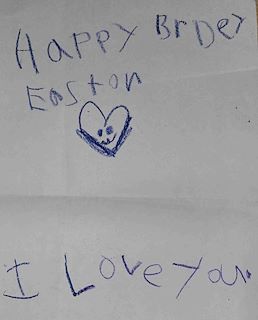 Happy BrDey
Easton
I Love You.